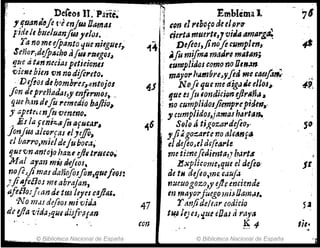 Deseos II. Parte.
y quando se vè en sus llamas
pide le buelvan sus yelos.
Ya no me espanto que niegues,
Señor, despacho à sus ruegos,
que à tan necias peticiones
viene bien un no discreto.
Deseos de hombres, antojos
son de preñadas, y enfermos,
que han de su remedio hastio,
y apetecen su veneno.
Es la genica
son sus alcorças el yesso,
el barro, miel de su boca,
que un antojo haze este trueco.
Mal ayan mis deseos,
no se, si mas dañosos son, que feos:
si afectos me abrasan,
afectos son de tus leyes essas.
No mas deseos mi vida
de esta vida, que disfraçan
con
44
45
46
47
Emblema I.
76
con el reboço de el oro
cierta muerte, y vida amarga.
Deseos, si no se cumplen,
à su misma madre matan;
cumplidos como no llenan
mayor hambre, y sed me causan.
No se que me diga de ellos,
que es su condicion estraña,
no cumplidos siempre piden,
y cumplidos, jamas hartan.
Solo à ti gozar deseo,
y si à gozarte no alcança
el deseo, el desearte
me tiene sedienta, y harta
Explicome, que el deseo
de tu deseo, me causa
nuevo gozo, y este enciende
en mayor fuego mis llamas.
Tan si desear codicio
tus leyes, que ellas à raya
K 4
tie-
48
49
50
51
52
© Biblioteca Nacional de España
© Biblioteca Nacional de España